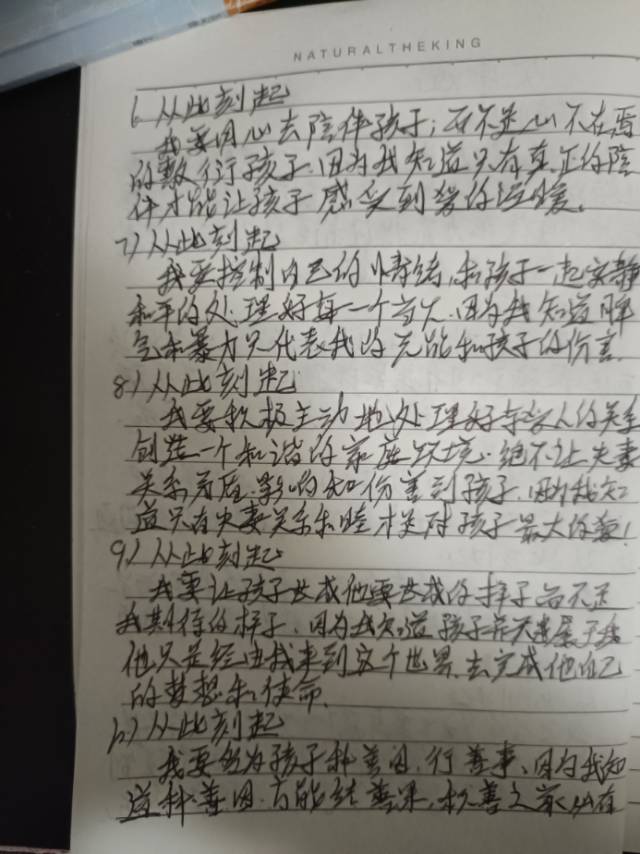 NATURALTHEKING
6. 从此刻起
我要用心去陪伴孩子；而不是心不在焉
的敷衍孩子.因为我知道只有真正的陪
伴才能让孩子感受到爱的温暖.
7) 从此刻起
我要控制自己的情绪,和孩子一起安静
和平的处理好每一个当下.因为我知道脾
气和暴力只代表我的无能和孩子的伤害.
8) 从此刻起
我要积极主动地处理好与家人的关系
创造一个和谐的家庭环境.绝不让夫妻
关系矛盾.影响和伤害到孩子.因为我知
道只有夫妻关系和睦才是对孩子最大的爱!
9) 从此刻起
我要让孩子长成他要长成的样子而不是
我期待的样子.因为我知道孩子并不隶属于我
他只是经由我来到这个世界.去完成他自己
的梦想和使命.
10) 从此刻起
我要多为孩子种善因.行善事.因为我知
道种善因.方能结善果.积善之家必有